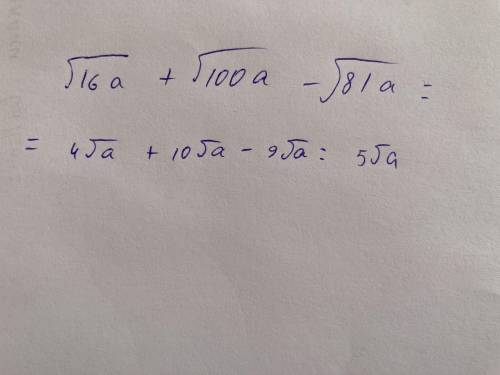 √16a + √100a - √81a =
= 4√a + 10√a - 9√a = 5√a